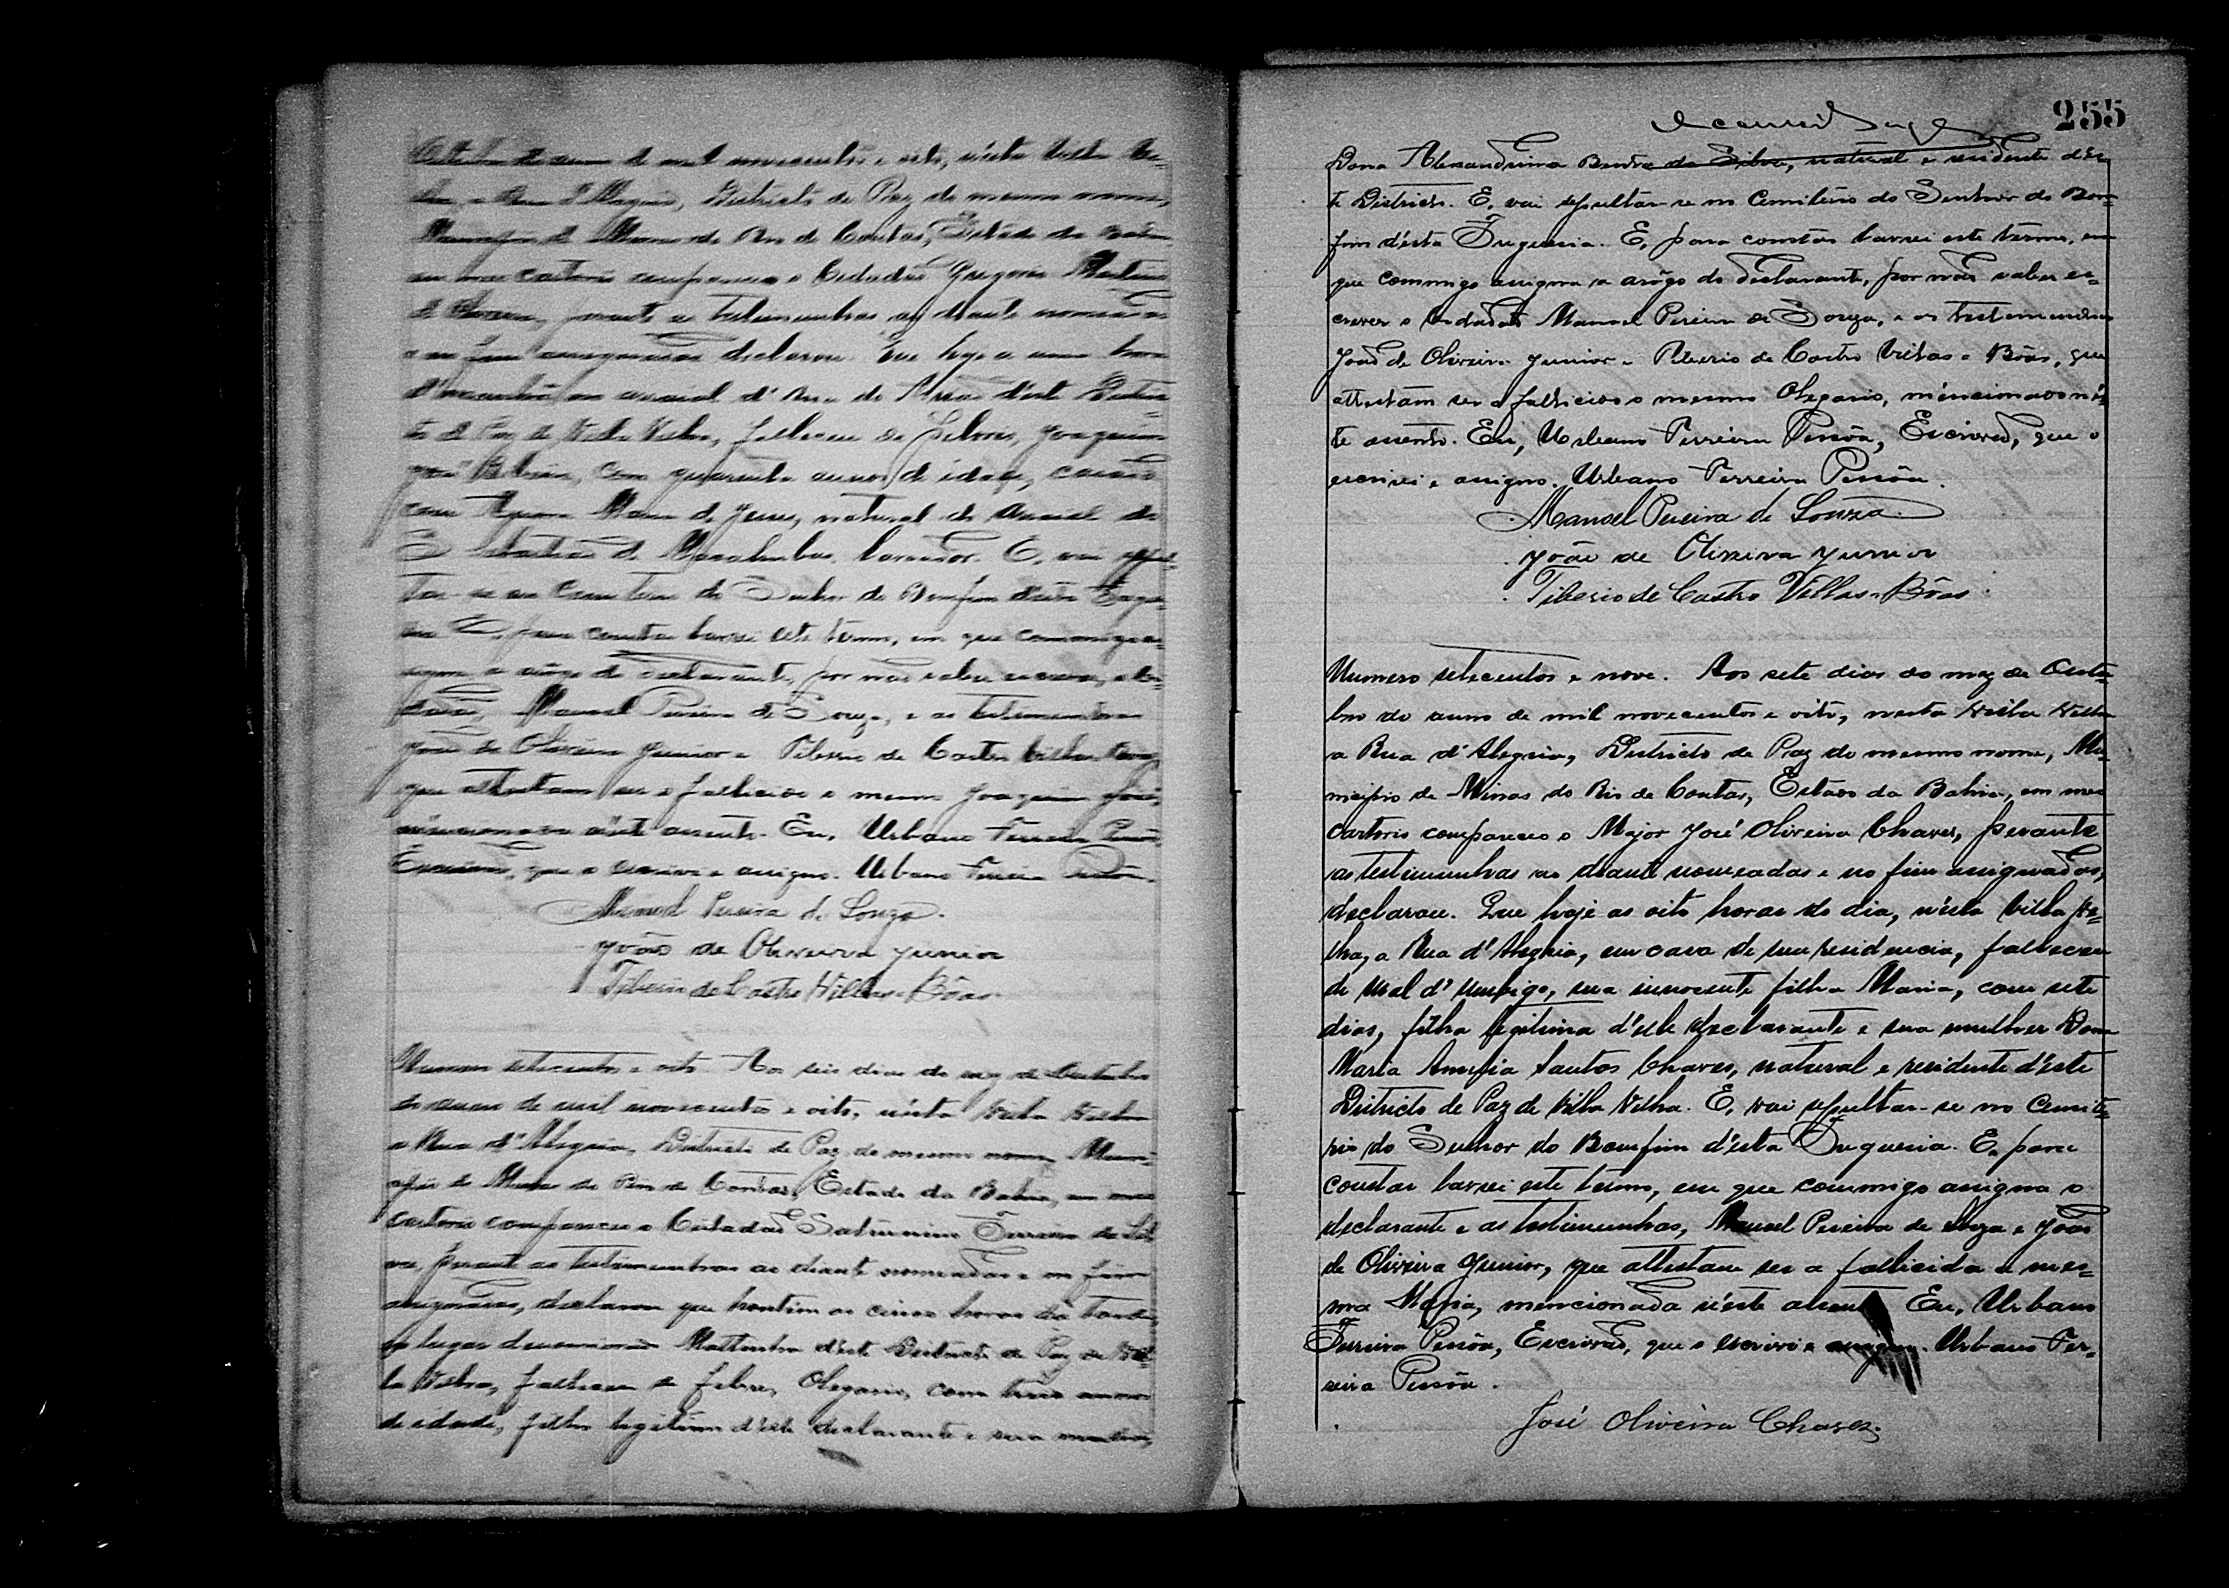 anno de mil novecentos e oito, n'esta Villa Ve=
lha, a Rua d'Alegria, Districto de Paz do mesmo nome,
Municipio de Minas do Rio de Contas, Estado da Bahia
em meu cartorio compareceu o Cidadão Gregorio
perante as testemunhas ao diante nomeadas
e no fim assignadas declarou. Que hoje a uma hora
d'manhã no arraial d' d'este Distric=
to de Paz de Villa Velha, falleceu de febres, Joaquim
José com quarenta annos de idade, casado
com Maria de Jesus, natural do Arraial de
S. Sebastião de lavrador. E, vai sepul=
tar-se no Cemiterio do Senhor do Bomfim d'esta Fregue=
sia. E, para constar lavrei este termo, em que commigo as=
signa a arôgo do declarante, por não saber escrever, o Ci=
dadão, Manoel Pereira de Souza, e as testemunhas
João de Oliveira Junior e Tiberio de Castro Villas Bôas,
que attestam ser o fallecido o mesmo Joaquim José,
mencionado n'este assento. Eu, Urbano Ferreira Pessôa,
Escrivão, que o escrevi e assigno. Urbano Ferreira Pessôa.
Manoel Pereira de Souza.
João de Oliveira Junior
Tiberio de Castro Villas-Bôas.
Numero setecentos e oito. Aos seis dias do mez de Outubro
do anno de mil novecentos e oito, n'esta Villa Velha
a Rua d'Alegria, Districto de Paz do mesmo nome, Muni=
cipio de Minas do Rio de Contas, Estado da Bahia, em meu
cartorio compareceu o Cidadão Saturnino Ferreira da Sil=
va, perante as testemunhas ao diante nomeadas e no fim
assignadas, declarou que hontem as cinco horas da tarde,
no lugar denominado Mattinha d'este Districto de Paz de Vil=
la Velha, falleceu de febres, Olegario, com annos
de idade, filho legitimo d'este declarante e sua mulher,
255
Dona Alexandrina da Silva, natural e residente d'es=
te Districto. E, vai sepultar-se no Cemiterio do Senhor do Bom=
fim d'esta Freguesia. E, para constar lavrei este termo, em
que commigo assigna a arôgo do declarante, por não saber es=
crever o Cidadão Manoel Pereira de Souza, e as testemunhas
João de Oliveira Junior e Tiberio de Castro Villas e Bôas, que
attestam ser o fallicido o mesmo Olegario, mencionado n'es=
te assento. Eu, Urbano Ferreira Pessôa, Escrivão, que o
escrevi e assigno. Urbano Ferreira Pessôa.
Manoel Pereira de Souza.
João de Oliveira Junior
Tiberio de Castro Villas-Bôas.
Numero setecentos e nove. Aos sete dias do mez de Outu=
bro do anno de mil novecentos e oito, nesta Villa Velha
a Rua d'Alegria, Districto de Paz do mesmo nome, Mu=
nicipio de Minas do Rio de Contas, Estado da Bahia, em meu
cartorio compareceu o Major José Oliveira Chaves, perante
as testimunhas ao diante nomeadas e no fim assignados,
declarou. Que hoje as oito horas do dia, n'esta Villa Ve=
lha, a Rua d'Alegria, em casa de sua residencia, falleceu
de Mal d'umbigo, sua innocente filha Maria, com sete
dias, filha legitima d'este declarante e sua mulher Dona
Maria Amelia Santos Chaves, natural e residente d'este
Districto de Paz de Villa Velha. E, vai sepultar-se no Cemite=
rio do Senhor do Bomfim d'esta Freguesia. E, para
constar lavrei este termo, em que commigo assigna o
declarante e as testimunhas, Manoel Pereira de Souza e João
de Oliveira Junior, que attestam ser a fallicida a mes=
ma Maria, mencionada n'este Eu, Urbano
Ferreira Pessôa, Escrivão, que o escrivi e assigno. Urbano Fer=
reira Pessôa.
José Oliveira Chaves.